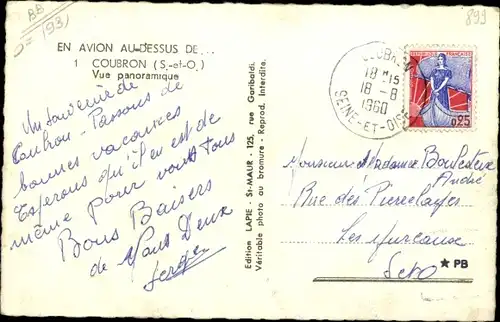 BB
(93)
899
EN AVION AU-DESSUS DE...
1 COUBRON (S.-et-O.)
Vue panoramique
Un souvenir de
Coubron - Passons de
bonnes vacances
Espérons qu'il en est de
même pour vous tous
Bons Baisers
de Nous Deux
Serge
Edition LAPIE - St-MAUR - 125, rue Garibaldi.
Véritable photo au bromure - Reprod. Interdite.
COUBRON
18 H 15
18 - 8
1960
SEINE-ET-OISE
REPUBLIQUE FRANÇAISE
0,25
Monsieur et Madame
André
Rue des
Les Mureaux
S et O
★ PB